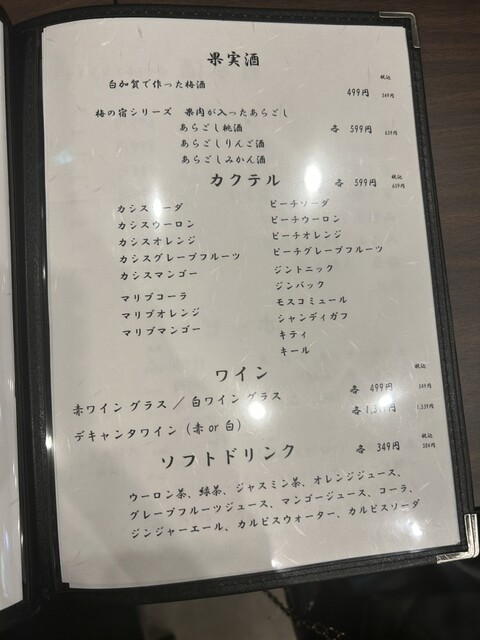 果実酒
税込
白加賀で作った梅酒 499円 549円
梅の宿シリーズ 果肉が入ったあらごし
あらごし桃酒 各 599円 659円
あらごしりんご酒
あらごしみかん酒
税込
カクテル 各 599円 659円
カシスソーダ ピーチソーダ
カシスウーロン ピーチウーロン
カシスオレンジ ピーチオレンジ
カシスグレープフルーツ ピーチグレープフルーツ
カシスマンゴー ジントニック
ジンバック
マリブコーラ モスコミュール
マリブオレンジ シャンディガフ
マリブマンゴー キティ
キール
ワイン 税込
赤ワイン グラス / 白ワイン グラス 各 499円 549円
デキャンタワイン (赤 or 白) 各
税込
ソフトドリンク 各 349円
ウーロン茶、緑茶、ジャスミン茶、オレンジジュース、
グレープフルーツジュース、マンゴージュース、コーラ、
ジンジャーエール、カルピスウォーター、カルピスソーダ